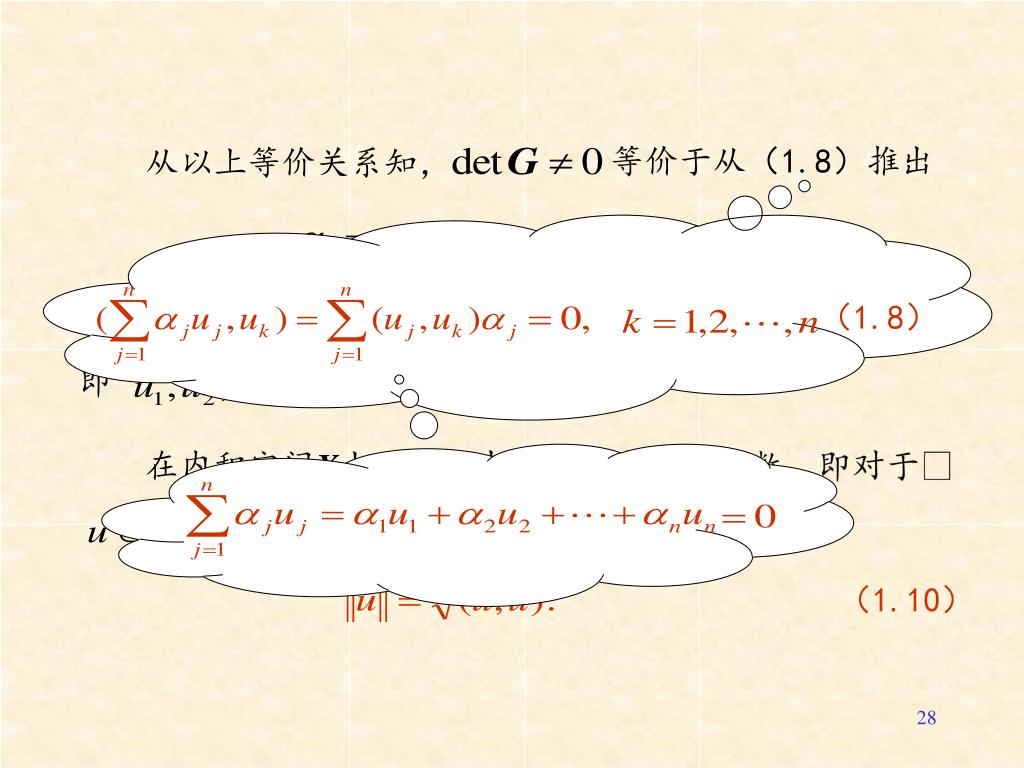 从以上等价关系知，det G ≠ 0 等价于从（1.8）推出
(∑_{j=1}^{n} α_j u_j , u_k) = ∑_{j=1}^{n} (u_j , u_k)α_j = 0, k = 1,2,⋯,n （1.8）
即 u_1 ,
即对于□
∑_{j=1}^{n} α_j u_j = α_1 u_1 + α_2 u_2 + ⋯ + α_n u_n = 0
u
‖u‖ = （1.10）
28